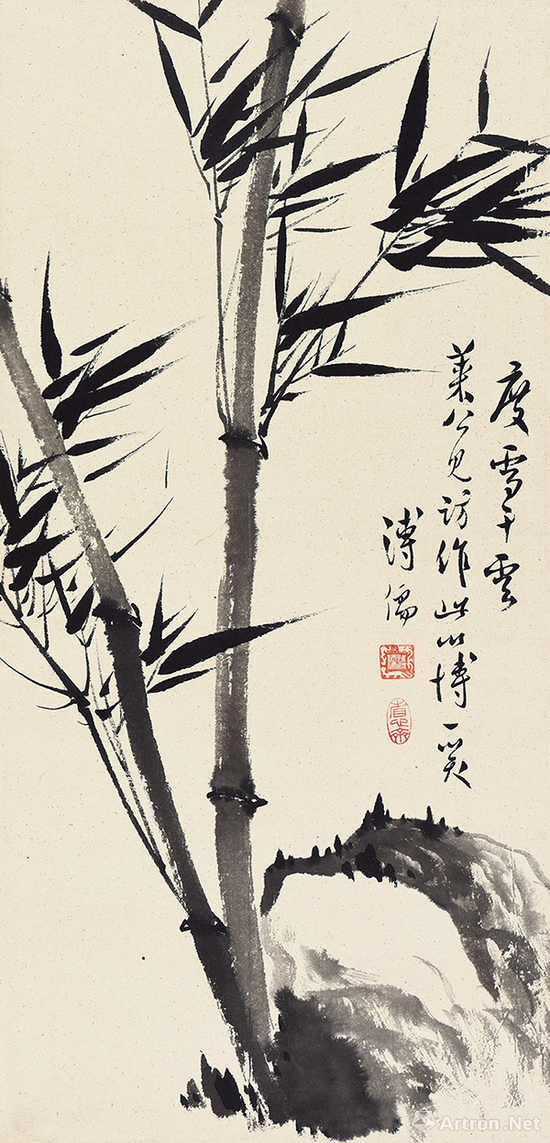 度雪干雲
葉公見訪作此以博一笑
溥儒
Artron.Net